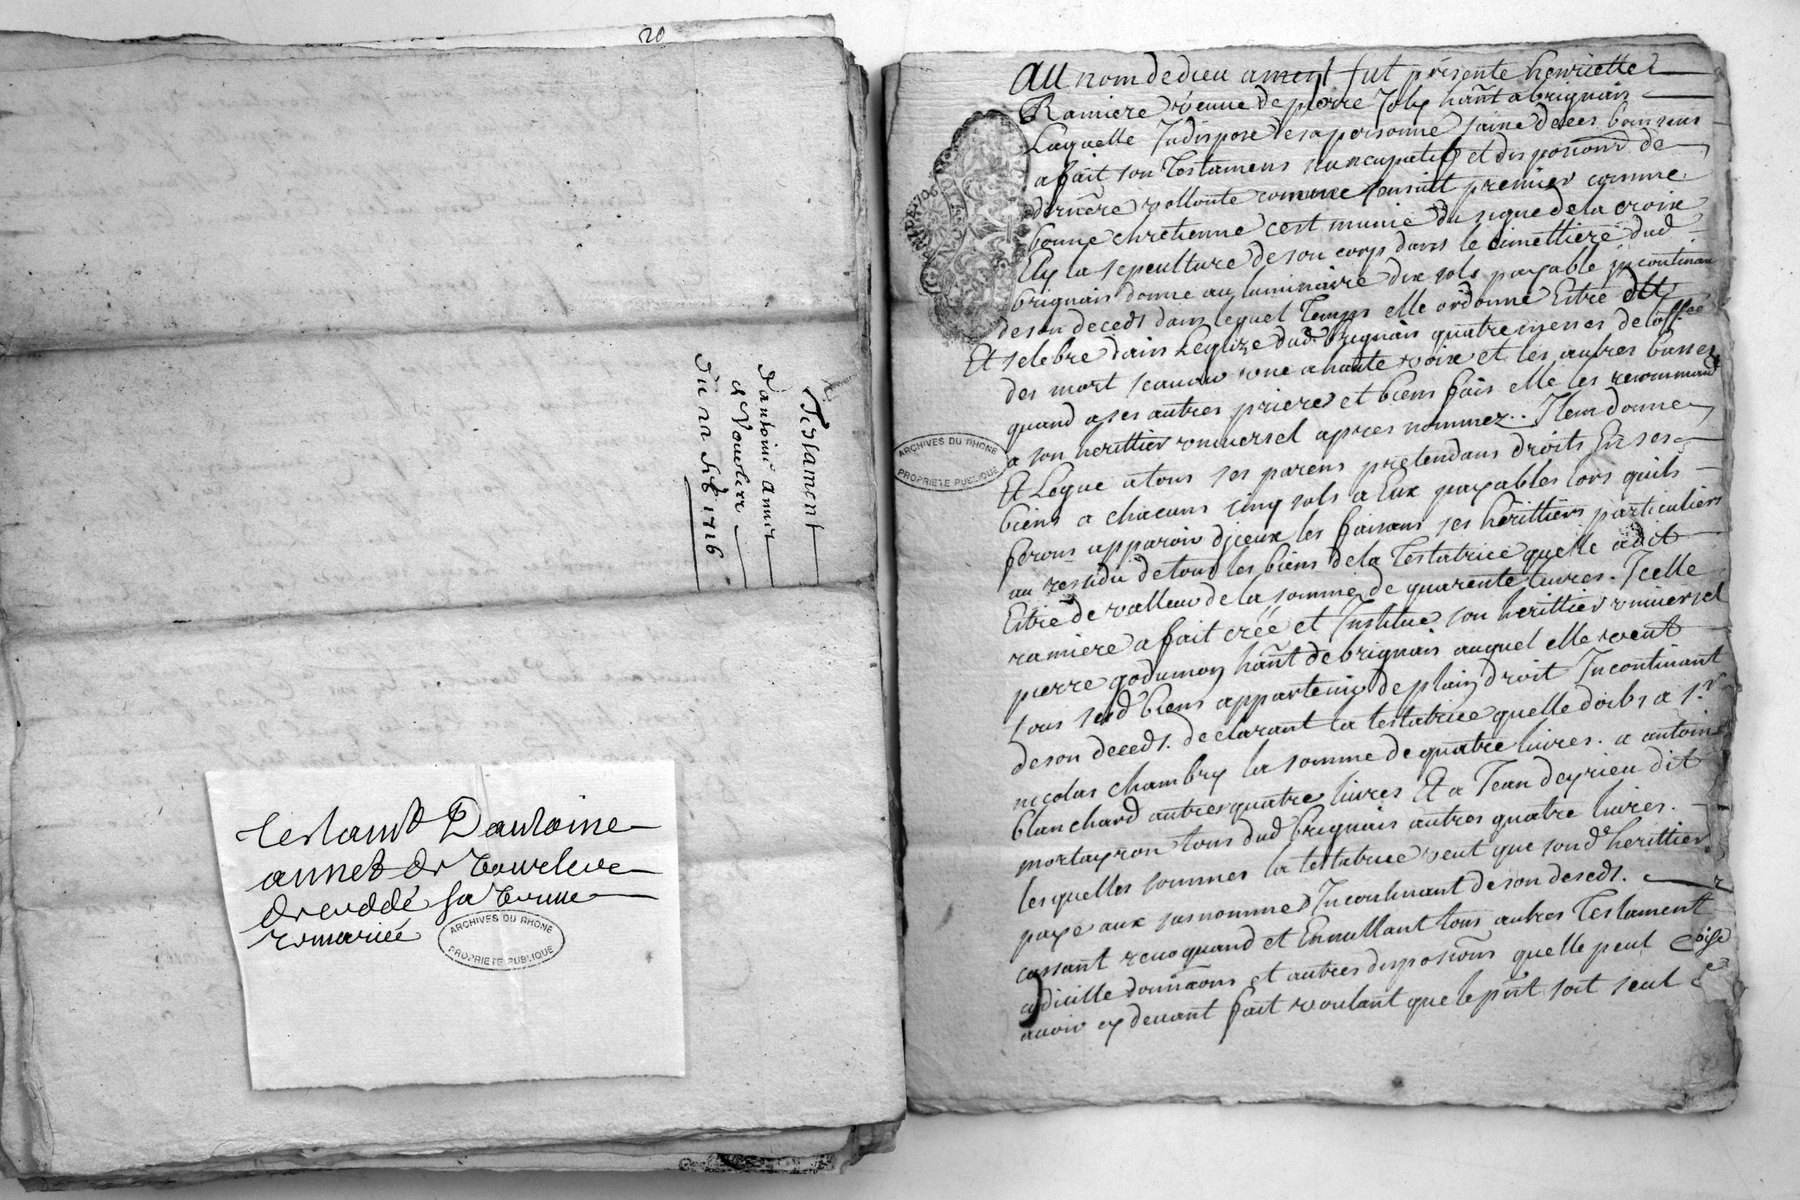 20
Testament
d'antoine annet
de Vourlere
du 22 feb 1716
testamt Dantoine
annet de Vourlere
deceddé sa venue
remariée
ARCHIVES DU RHONE
PROPRIETE PUBLIQUE
au nom de dieu amen fut présente henriette
Ramiere veuve de pierre Joly hant a brignais
Laquelle Indispose de sa personne saine de ces bon sens
a fait son Testament nuncupatif et disposions de
derniere vollonté comme sensuit premier comme
bonne chretienne c'est munie du signe de la croix
Ely la sepculture de son corp dans le cimettiere dud
brignais donne au luminaire dix sols payable incontinan
de son deceds dans lequel Temps elle ordonne Estre dit
Et selebre dains Leglize dud brignais quatre messes de loffice
des mort scavoir une a haute voix et les autres basses
quand a ses autres priere et biens fais elle les recommand
a son herittier universel apres nommez.. Item donne
Et Legue a tous ses parens pretendans droits En ses
biens a chacuns cinq sols a Eux payables lors quils
feront apparoir djceux les faisant ses herittiers particuliers
au residu de tous les biens de la Testatrice quelle a dit
Estre de valleur de la somme de quarente livres. Icelle
ramiere a fait creé et Institue son herittier universel
pierre godumon hant de brignais auquel elle veut
tous sesd biens appartenir de plain droit Incontinant
de son deceds. declarant la testatrice quelle doibs a sr
nicolas chambry la somme de quatre livres. a antoine
blanchard autres quatre livres Et a Jean deyrieu dit
mortayron tous dud brignais autres quatre livres.
lesquelles sommes la testatrice veut que sond herittier
paye aux susnommes Incontinant de son deseds.
cassant revoquand et Ennullant tous autres Testament
codicille donnaons et autres disposions quelle peut
avoir cy devant fait voulant que le pnt soit seul
ARCHIVES DU RHONE
PROPRIETE PUBLIQUE